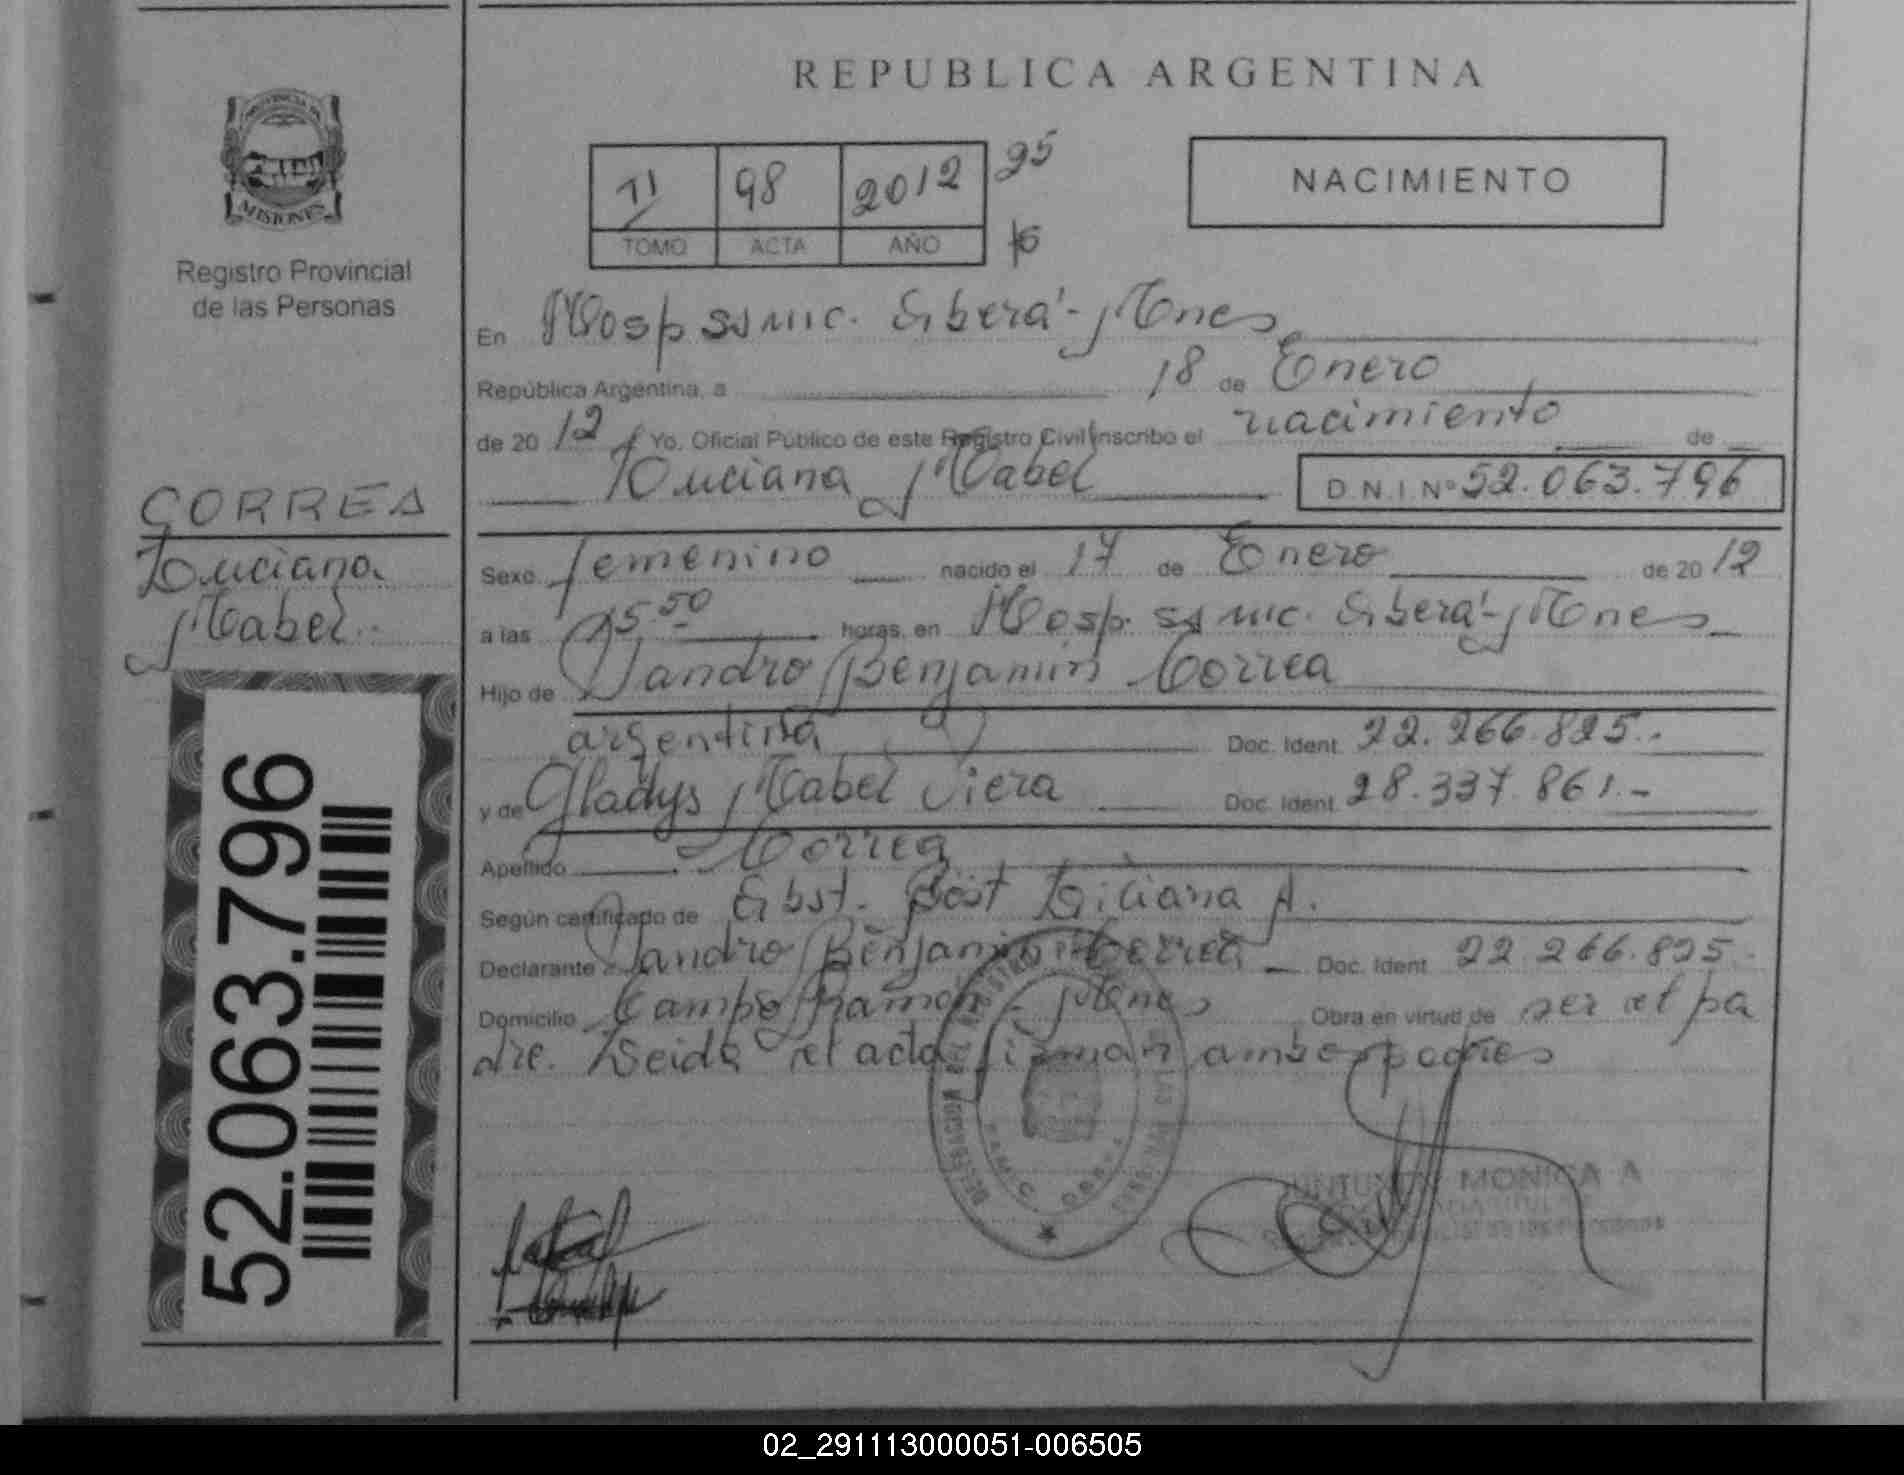 REPUBLICA ARGENTINA
PROVINCIA DE
MISIONES
Registro Provincial
de las Personas
II 98 2012 95
TOMO ACTA AÑO 16
NACIMIENTO
En Hosp ssmic. Oberá - Mnes
República Argentina, a 18 de Enero
de 2012 Yo, Oficial Público de este Registro Civil inscribo el nacimiento de
Luciana Mabel D.N.I Nº 52.063.796
CORREA
Luciana
Mabel
Sexo femenino nacido el 17 de Enero de 2012
a las 15.50 horas, en Hosp. ssmic. Oberá - Mnes
Hijo de Sandro Benjamin Correa
argentina Doc. Ident. 22.266.825.-
y de Gladys Mabel Viera Doc. Ident. 28.337.861.-
Apellido Correa
Según certificado de Obst. Bost Liliana A.
Declarante Sandro Benjamin Correa Doc. Ident. 22.266.825.-
Domicilio Campo Ramon - Mnes Obra en virtud de ser el pa
dre. Leida el acta firman ambos padres
52.063.796
MONICA A
02_291113000051-006505